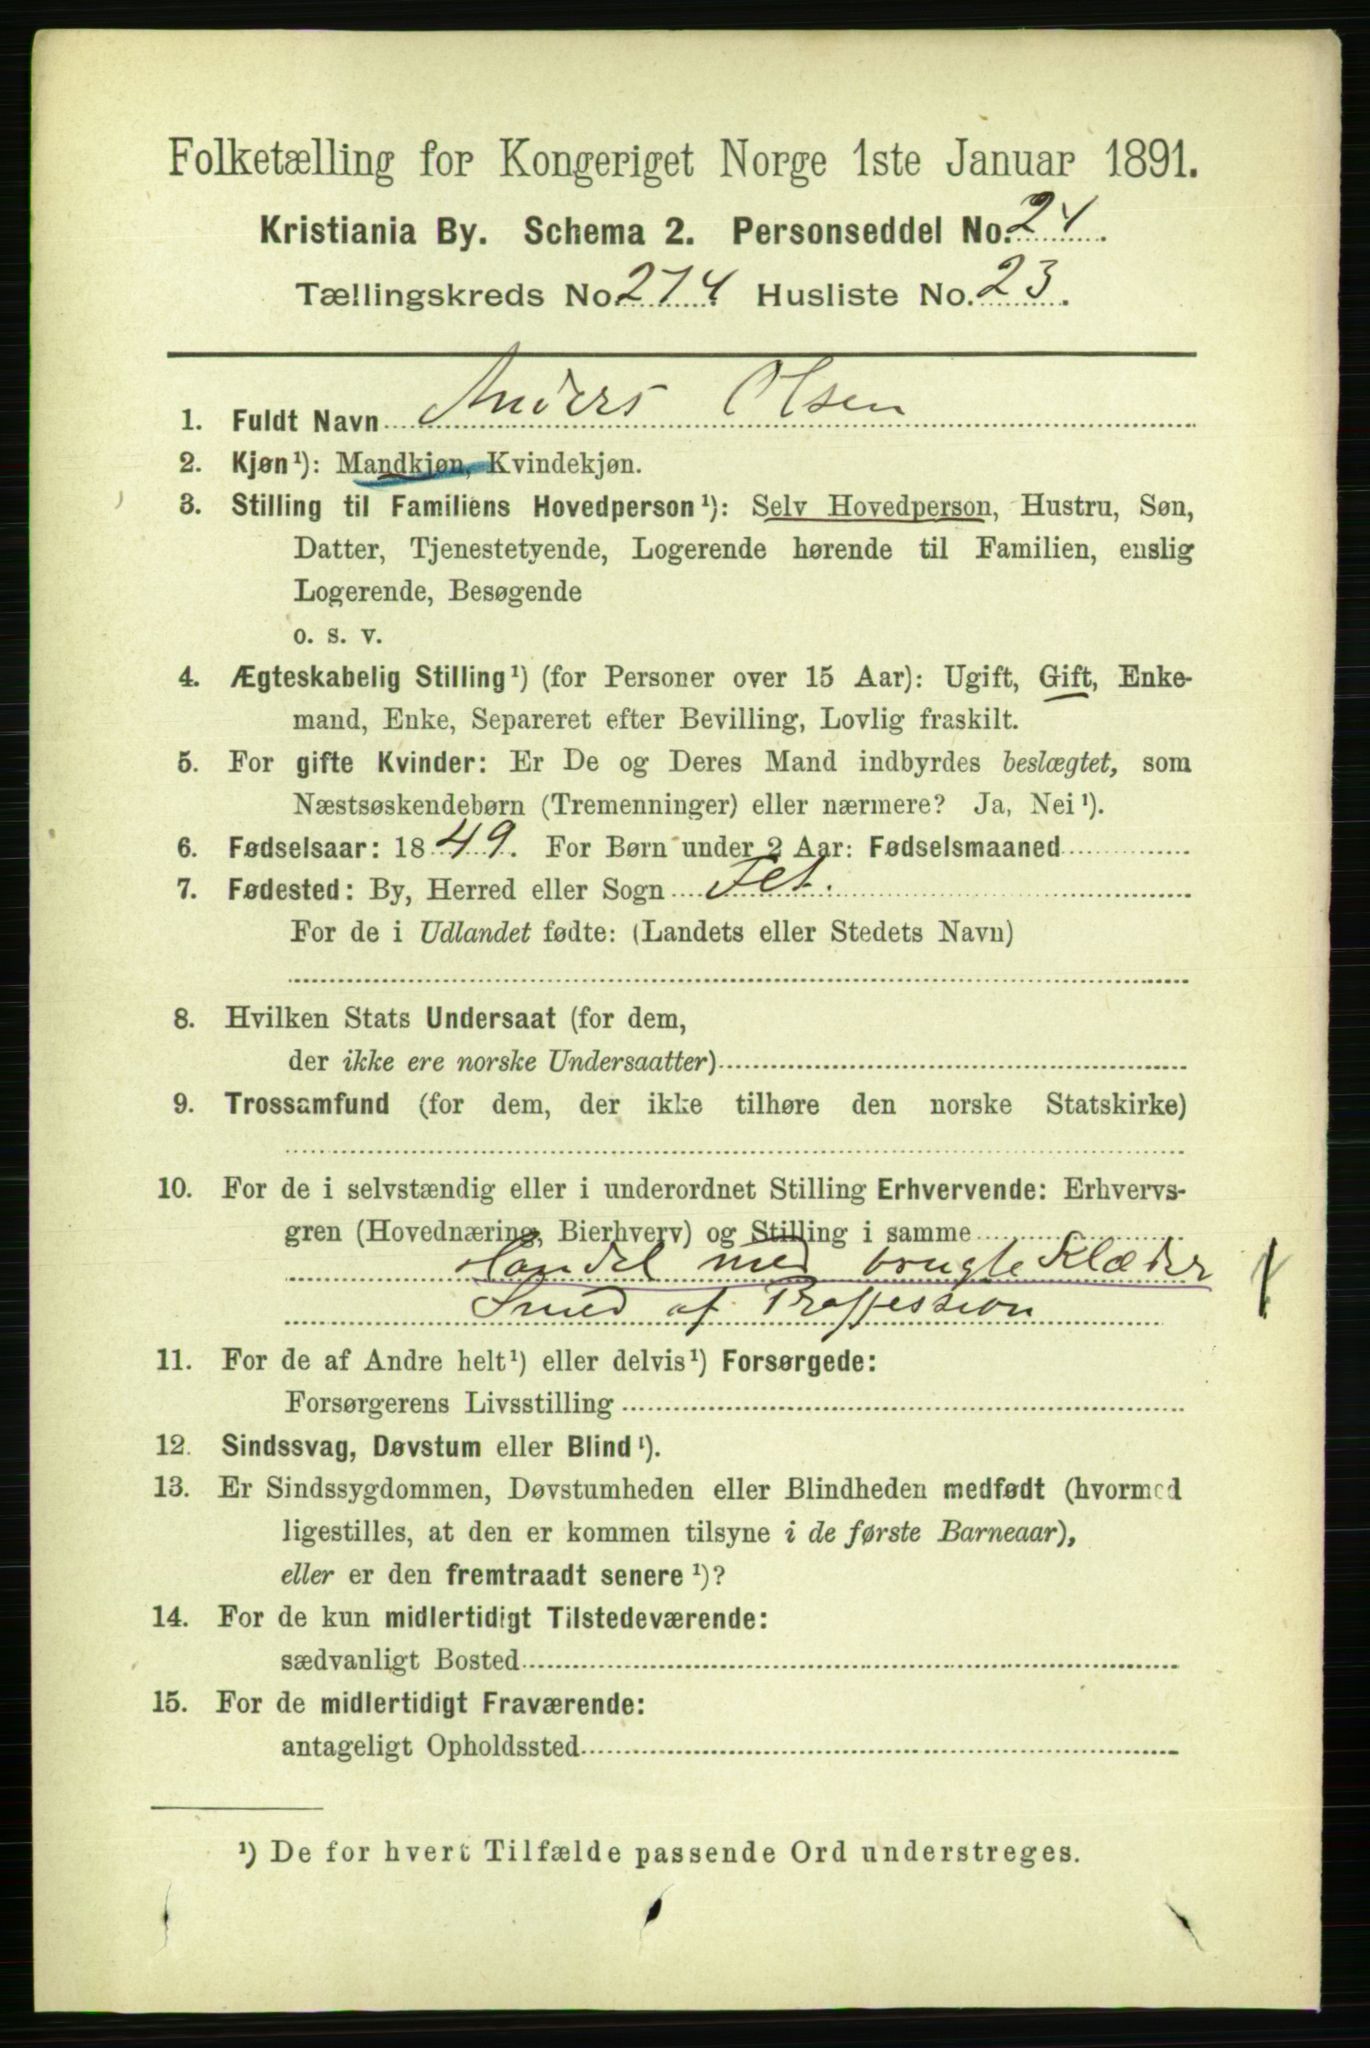 Folketælling for Kongeriget Norge 1ste Januar 1891.
Kristiania By. Schema 2. Personseddel No. 24.
Tællingskreds No. 214 Husliste No. 23.
1. Fuldt Navn Anders Olsen
2. Kjøn¹): Mandkjøn, Kvindekjøn.
3. Stilling til Familiens Hovedperson¹): Selv Hovedperson, Hustru, Søn,
Datter, Tjenestetyende, Logerende hørende til Familien, enslig
Logerende, Besøgende
o. s. v.
4. Ægteskabelig Stilling¹) (for Personer over 15 Aar): Ugift, Gift, Enke-
mand, Enke, Separeret efter Bevilling, Lovlig fraskilt.
5. For gifte Kvinder: Er De og Deres Mand indbyrdes beslægtet, som
Næstsøskendebørn (Tremenninger) eller nærmere? Ja, Nei¹).
6. Fødselsaar: 1849. For Børn under 2 Aar: Fødselsmaaned
7. Fødested: By, Herred eller Sogn Fet.
For de i Udlandet fødte: (Landets eller Stedets Navn)
8. Hvilken Stats Undersaat (for dem,
der ikke ere norske Undersaatter)
9. Trossamfund (for dem, der ikke tilhøre den norske Statskirke)
10. For de i selvstændig eller i underordnet Stilling Erhvervende: Erhvervs-
gren (Hovednæring, Bierhverv) og Stilling i samme
Handel med brugte Klæder
Smed af Proffession
11. For de af Andre helt¹) eller delvis¹) Forsørgede:
Forsørgerens Livsstilling
12. Sindssvag, Døvstum eller Blind¹).
13. Er Sindssygdommen, Døvstumheden eller Blindheden medfødt (hvormed
ligestilles, at den er kommen tilsyne i de første Barneaar),
eller er den fremtraadt senere¹)?
14. For de kun midlertidigt Tilstedeværende:
sædvanligt Bosted
15. For de midlertidigt Fraværende:
antageligt Opholdssted
¹) De for hvert Tilfælde passende Ord understreges.